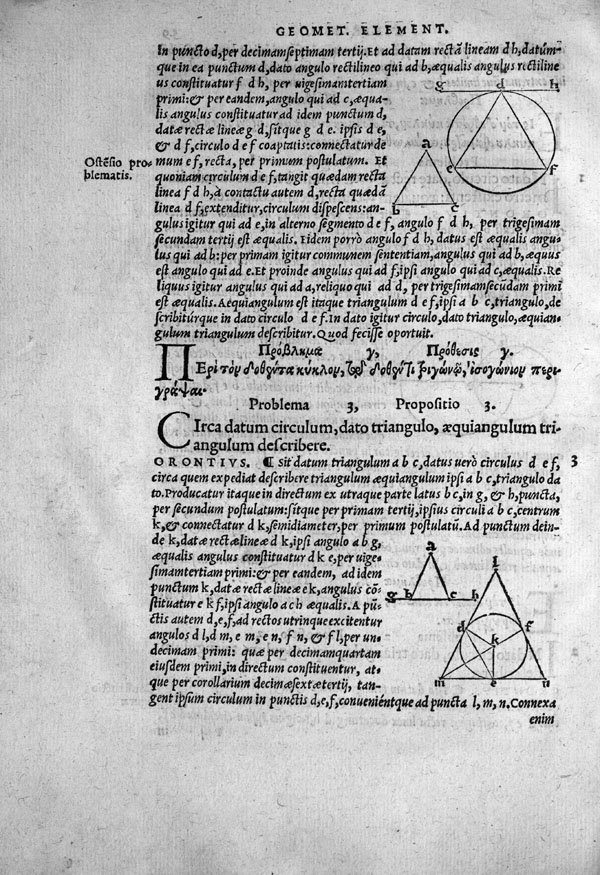 GEOMET. ELEMENT.
In puncto d, per decimamseptimam tertij. Et ad datam rectā lineam d h, datúm-
que in ea punctum d, dato angulo rectilineo qui ad b, æqualis angulus rectiline
us constituatur f d h, per uigesimamtertiam
primi: & per eandem, angulo qui ad c, æqua-
lis angulus constituatur ad idem punctum d,
datæ rectæ lineæ g d, sítque g d e. ipsis d e,
& d f, circulo d e f coaptatis: connectatur de
mum e f, recta, per primum postulatum. Et
quoniam circulum d e f, tangit quædam recta
linea f d h, à contactu autem d, recta quædā
linea d f, extenditur, circulum dispescens: an-
gulus igitur qui ad e, in alterno segmento d e f, angulo f d h, per trigesimam
secundam tertij est æqualis. Eidem porrò angulo f d h, datus est æqualis angu-
lus qui ad b: per primam igitur communem sententiam, angulus qui ad b, æquus
est angulo qui ad e. Et proinde angulus qui ad f, ipsi angulo qui ad c, æqualis. Re
liquus igitur angulus qui ad a, reliquo qui ad d, per trigesimamsecūdam primi
est æqualis. Aequiangulum est itaque triangulum d e f, ipsi a b c, triangulo, de
scribitúrque in dato circulo d e f. In dato igitur circulo, dato triangulo, æquian-
gulum triangulum describitur. Quod fecisse oportuit.
Ostēsio pro-
blematis.
g d h
a
e f
b c
Πρόβλημα γ, Πρόθεσις γ.
ΠΕρὶ τὸν δοθέντα κύκλον, τῷ δοθέντι τριγώνῳ, ἰσογώνιον περι
γράψαι.
Problema 3, Propositio 3.
CIrca datum circulum, dato triangulo, æquiangulum tri-
angulum describere.
ORONTIVS. ¶ Sit datum triangulum a b c, datus uerò circulus d e f,
3
circa quem expediat describere triangulum æquiangulum ipsi a b c, triangulo da
to. Producatur itaque in directum ex utraque parte latus b c, in g, & h, puncta,
per secundum postulatum: sítque per primam tertij, ipsius circuli a b c, centrum
k, & connectatur d k, semidiameter, per primum postulatū. Ad punctum dein-
de k, datæ rectæ lineæ d k, ipsi angulo a b g,
æqualis angulus constituatur d k e, per uige-
simamtertiam primi: & per eandem, ad idem
punctum k, datæ rectæ lineæ e k, angulus cō-
stituatur e k f, ipsi angulo a c h æqualis. A pū-
ctis autem d, e, f, ad rectos utrinque excitentur
anguli d l, d m, e m, e n, f n, & f l, per un-
decimam primi: quæ per decimamquartam
eiusdem primi, in directum constituentur, at-
que per corollarium decimæsextæ tertij, tan-
gent ipsum circulum in punctis d, e, f, conueniéntque ad puncta l, m, n. Connexa
a
g b c h
l
d f
k
m e n
enim